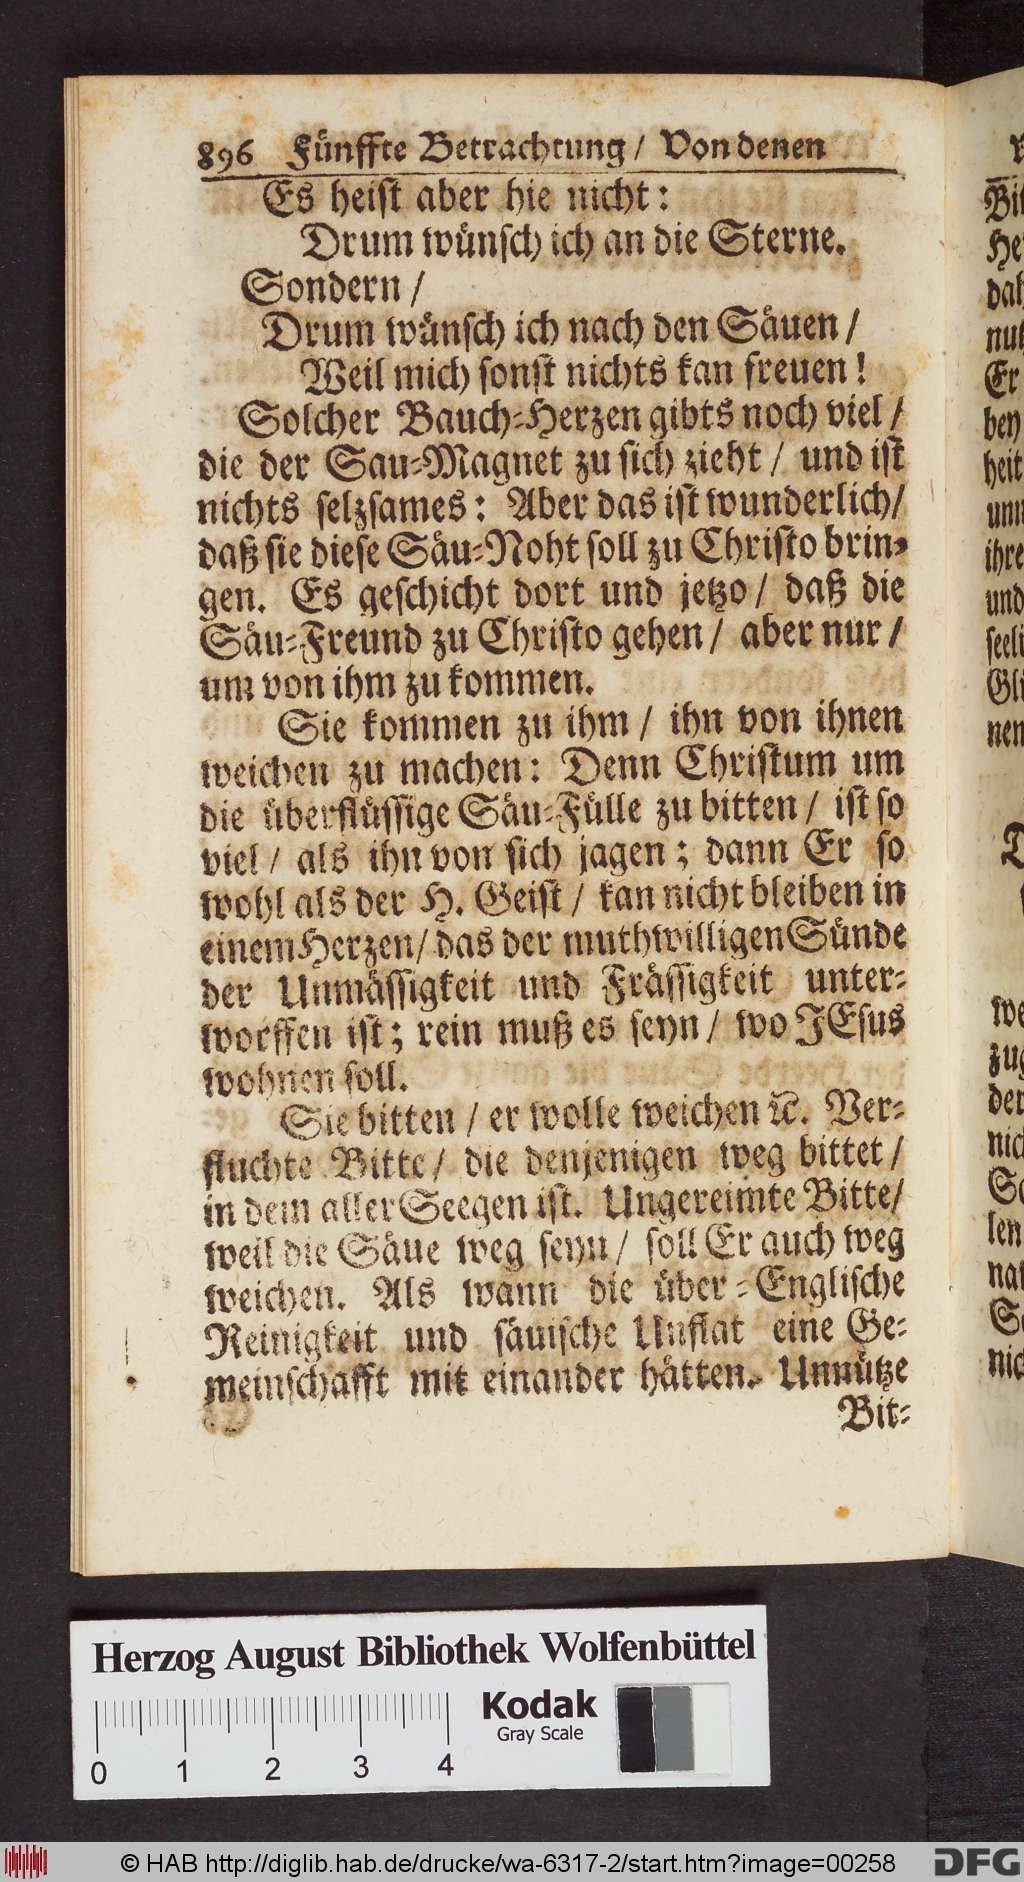 896 Fünffte Betrachtung / Von denen
Es heist aber hie nicht:
Drum wünsch ich an die Sterne.
Sondern /
Drum wünsch ich nach den Säuen /
Weil mich sonst nichts kan freuen!
Solcher Bauch-Herzen gibts noch viel /
die der Sau-Magnet zu sich zieht / und ist
nichts selzsames: Aber das ist wunderlich /
daß sie diese Säu-Noht soll zu Christo brin-
gen. Es geschicht dort und jetzo / daß die
Säu-Freund zu Christo gehen / aber nur /
um von ihm zu kommen.
Sie kommen zu ihm / ihn von ihnen
weichen zu machen: Denn Christum um
die überflüssige Säu-Fülle zu bitten / ist so
viel / als ihn von sich jagen; dann Er so
wohl als der H. Geist / kan nicht bleiben in
einem Herzen / das der muthwilligen Sünde
der Unmässigkeit und Frässigkeit unter-
worffen ist; rein muß es seyn / wo JEsus
wohnen soll.
Sie bitten / er wolle weichen ꝛc. Ver-
fluchte Bitte / die denjenigen weg bittet /
in dem aller Seegen ist. Ungereimte Bitte /
weil die Säue weg seyn / soll Er auch weg
weichen. Als wann die über-Englische
Reinigkeit und säuische Unflat eine Ge-
meinschafft mit einander hätten. Unnütze
Bit-
Bit
He
dah
nu
Er
bey
heit
unn
ihre
und
seeli
Gl
nen
we
zug
der
nic
len
na
nic
Herzog August Bibliothek Wolfenbüttel
Kodak
Gray Scale
0 1 2 3 4
© HAB http://diglib.hab.de/drucke/wa-6317-2/start.htm?image=00258
DFG